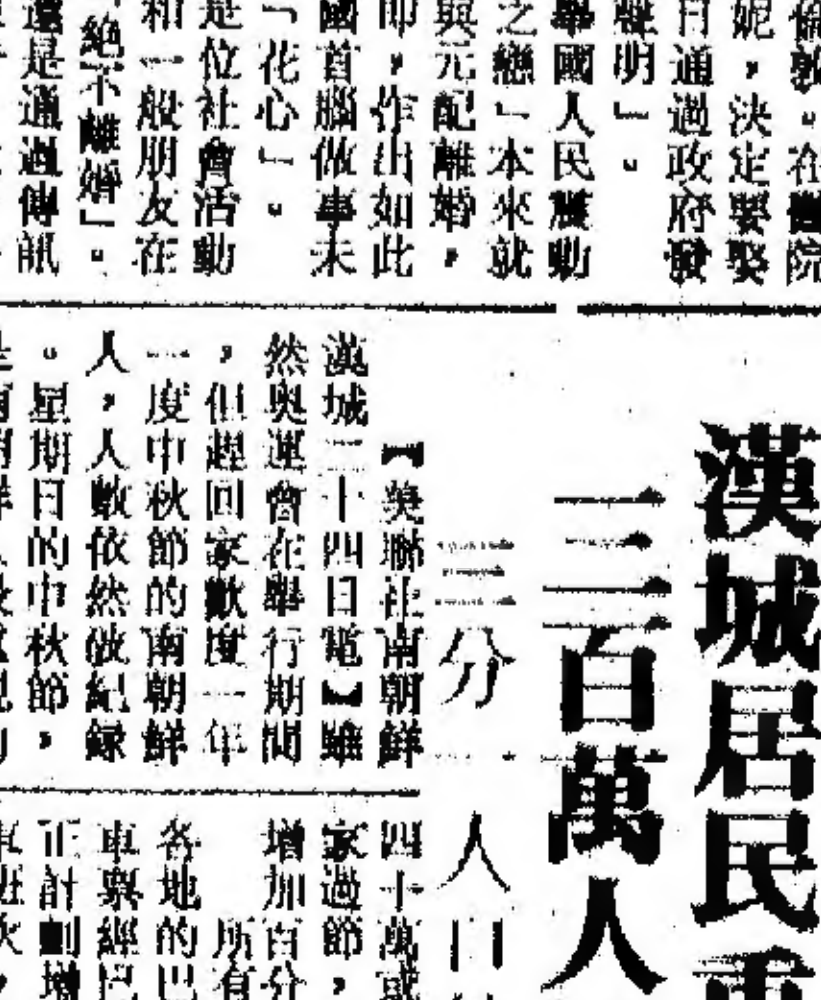 倫敦。在醫院
妮，決定要娶
日通過政府發
聲明」。
舉國人民震動
之戀」本來就
與元配離婚，
即，作出如此
國首腦做事未
「花心」。
是位社會活動
和一般朋友在
絕不離婚」。
還是通過傳訊
漢城居民重
三百萬人
三分一人口
【美聯社南朝鮮
漢城二十四日電】雖
然奧運會在舉行期間
，但趕回家歡度一年
一度中秋節的南朝鮮
人，人數依然破紀錄
。星期日的中秋節，
四十萬或
家過節，
增加百分
所有
各地的巴
車票經已
正計劃增
班次，